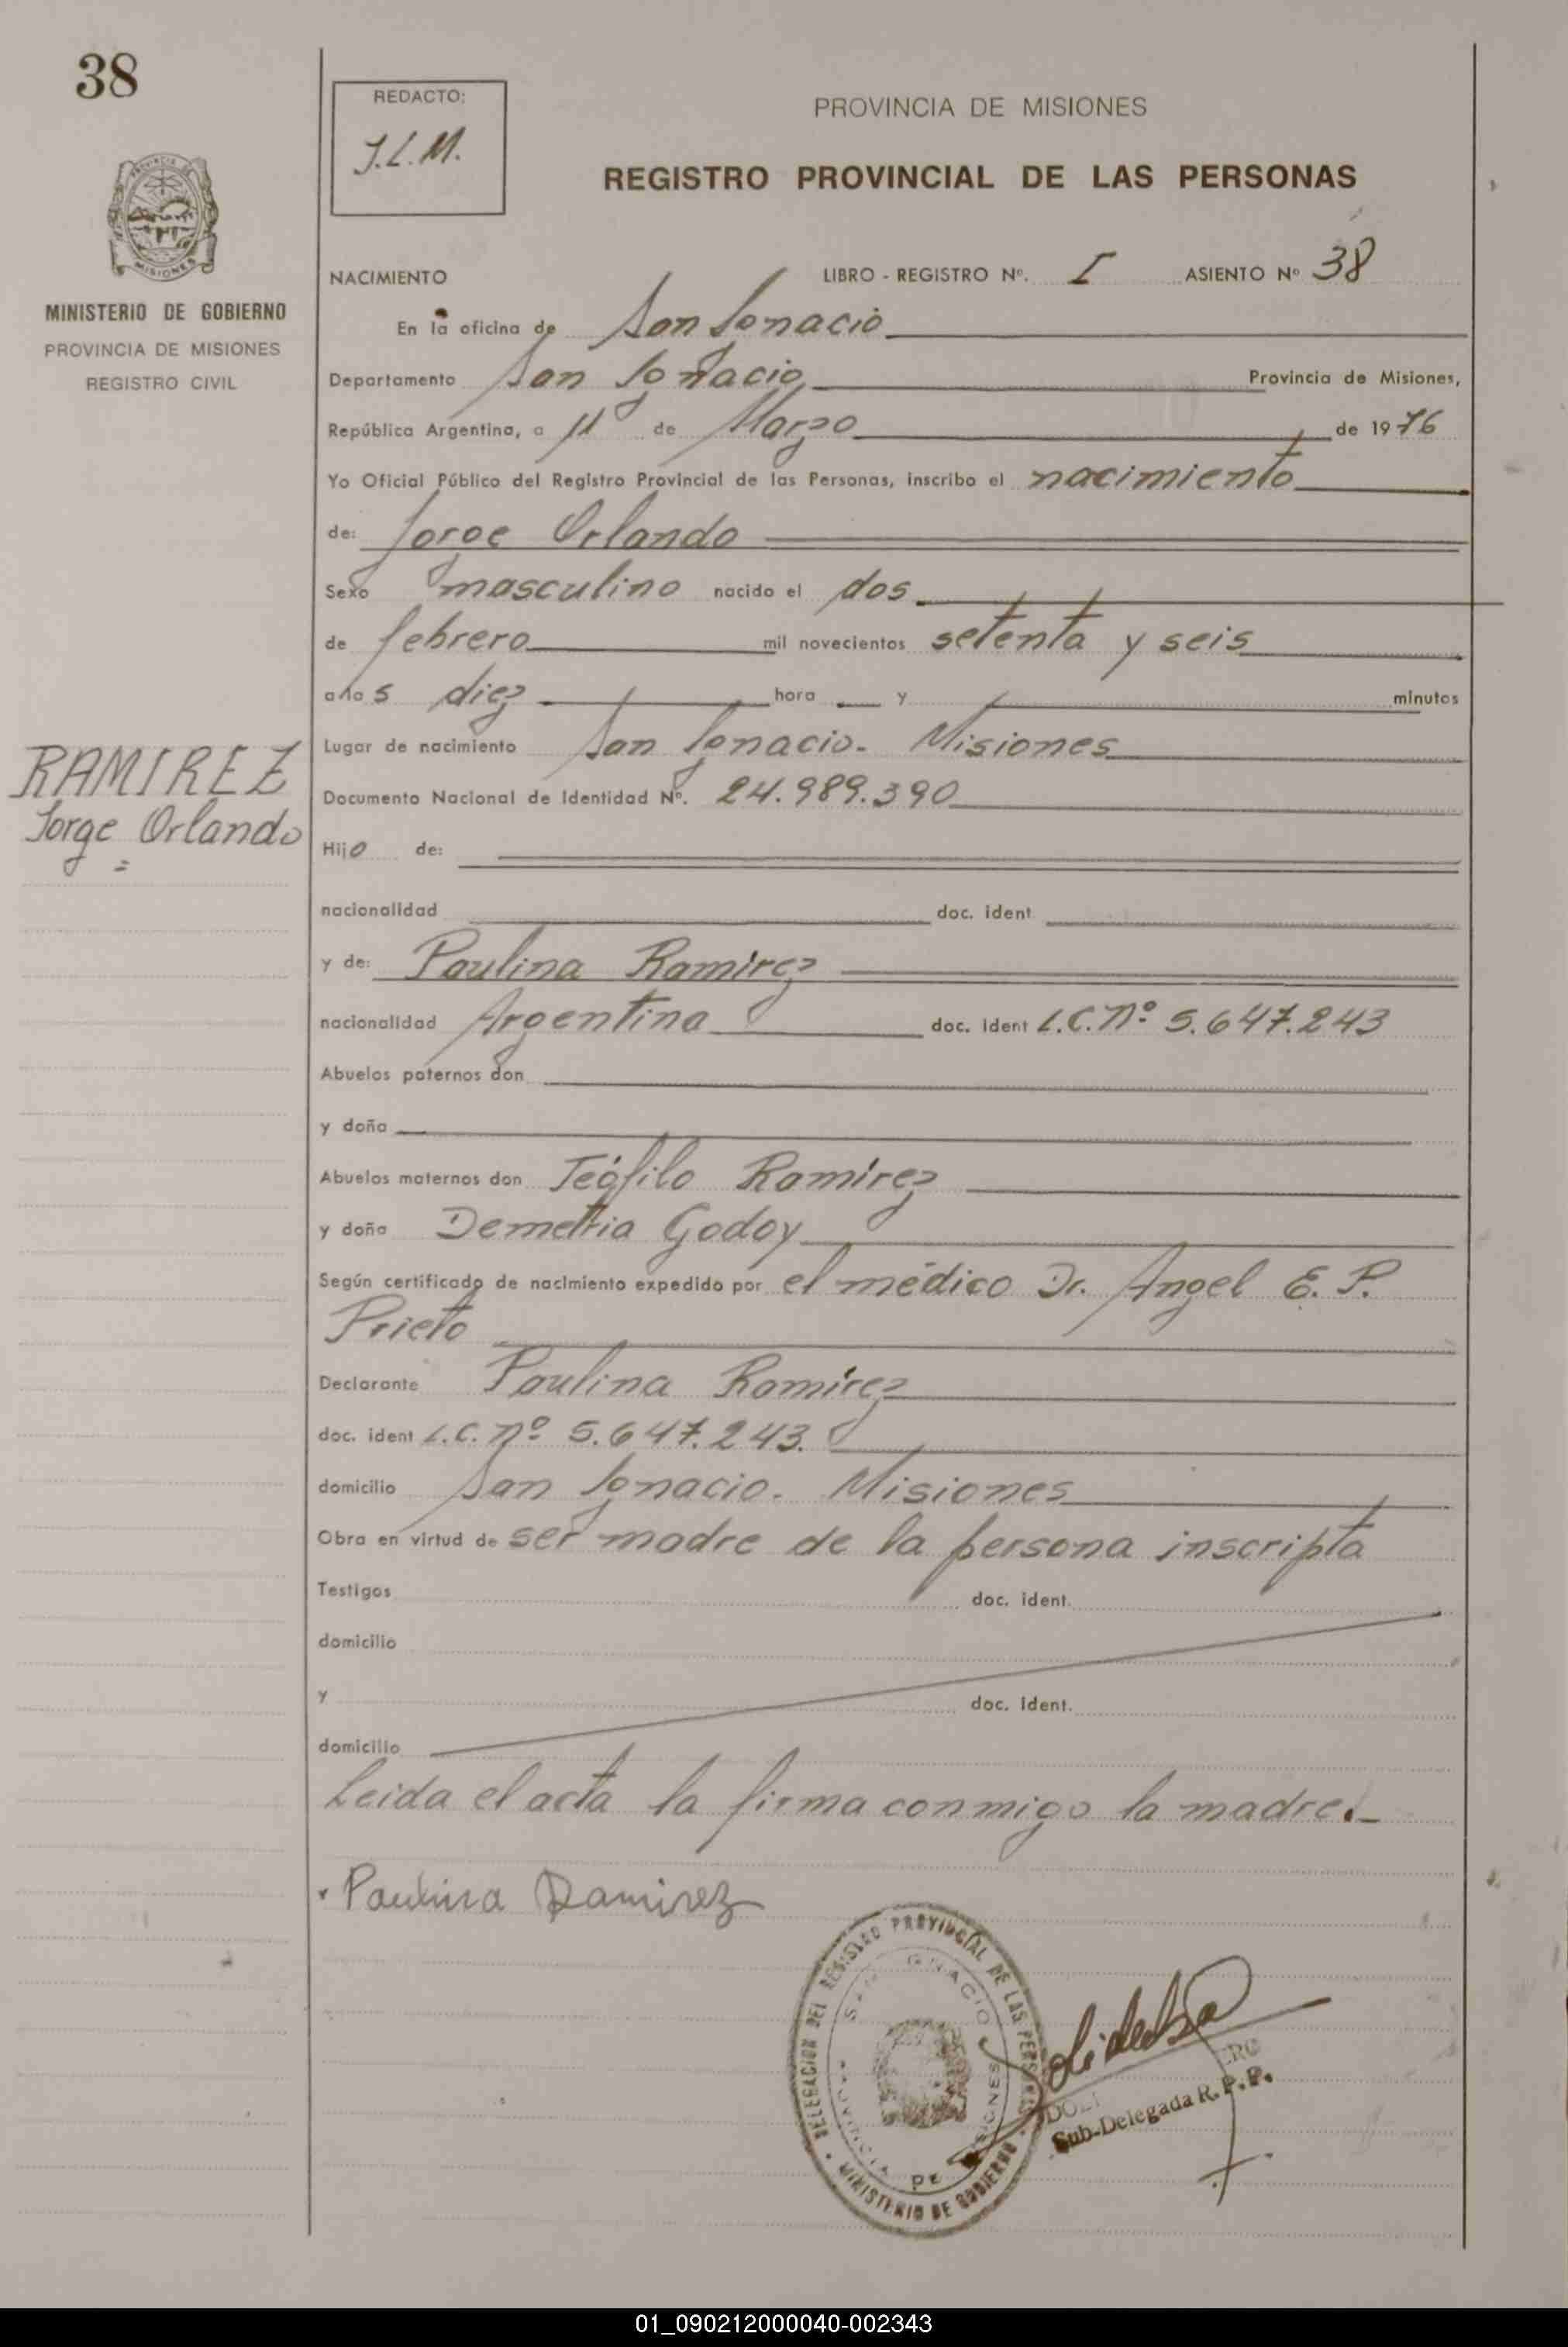 38
REDACTO:
J.L.M.
PROVINCIA DE MISIONES
REGISTRO PROVINCIAL DE LAS PERSONAS
MISIONES
MINISTERIO DE GOBIERNO
PROVINCIA DE MISIONES
REGISTRO CIVIL
NACIMIENTO LIBRO - REGISTRO Nº. I ASIENTO Nº 38
En la oficina de San Ignacio
Departamento San Ignacio Provincia de Misiones,
República Argentina, a 11 de Marzo de 1976
Yo Oficial Público del Registro Provincial de las Personas, inscribo el nacimiento
de: Jorge Orlando
Sexo masculino nacido el dos
de febrero mil novecientos setenta y seis
a las diez hora y minutos
Lugar de nacimiento San Ignacio. Misiones
RAMIREZ
Jorge Orlando
Documento Nacional de Identidad Nº. 24.989.390
Hijo de:
nacionalidad doc. ident
y de: Paulina Ramírez
nacionalidad Argentina doc. ident L.C. Nº 5.647.243
Abuelos paternos don
y doña
Abuelos maternos don Teófilo Ramírez
y doña Demetria Godoy
Según certificado de nacimiento expedido por el médico Dr. Angel E. P.
Prieto
Declarante Paulina Ramírez
doc. ident L.C. Nº 5.647.243.
domicilio San Ignacio. Misiones
Obra en virtud de ser madre de la persona inscripta
Testigos doc. ident.
domicilio
y doc. ident.
domicilio
Leida el acta la firma conmigo la madre.
Paulina Ramirez
DELEGACION DEL REGISTRO PROVINCIAL DE LAS PERSONAS
SAN IGNACIO
PROVINCIA DE MISIONES
MINISTERIO DE GOBIERNO
Sub-Delegada R. P. P.
01_090212000040-002343